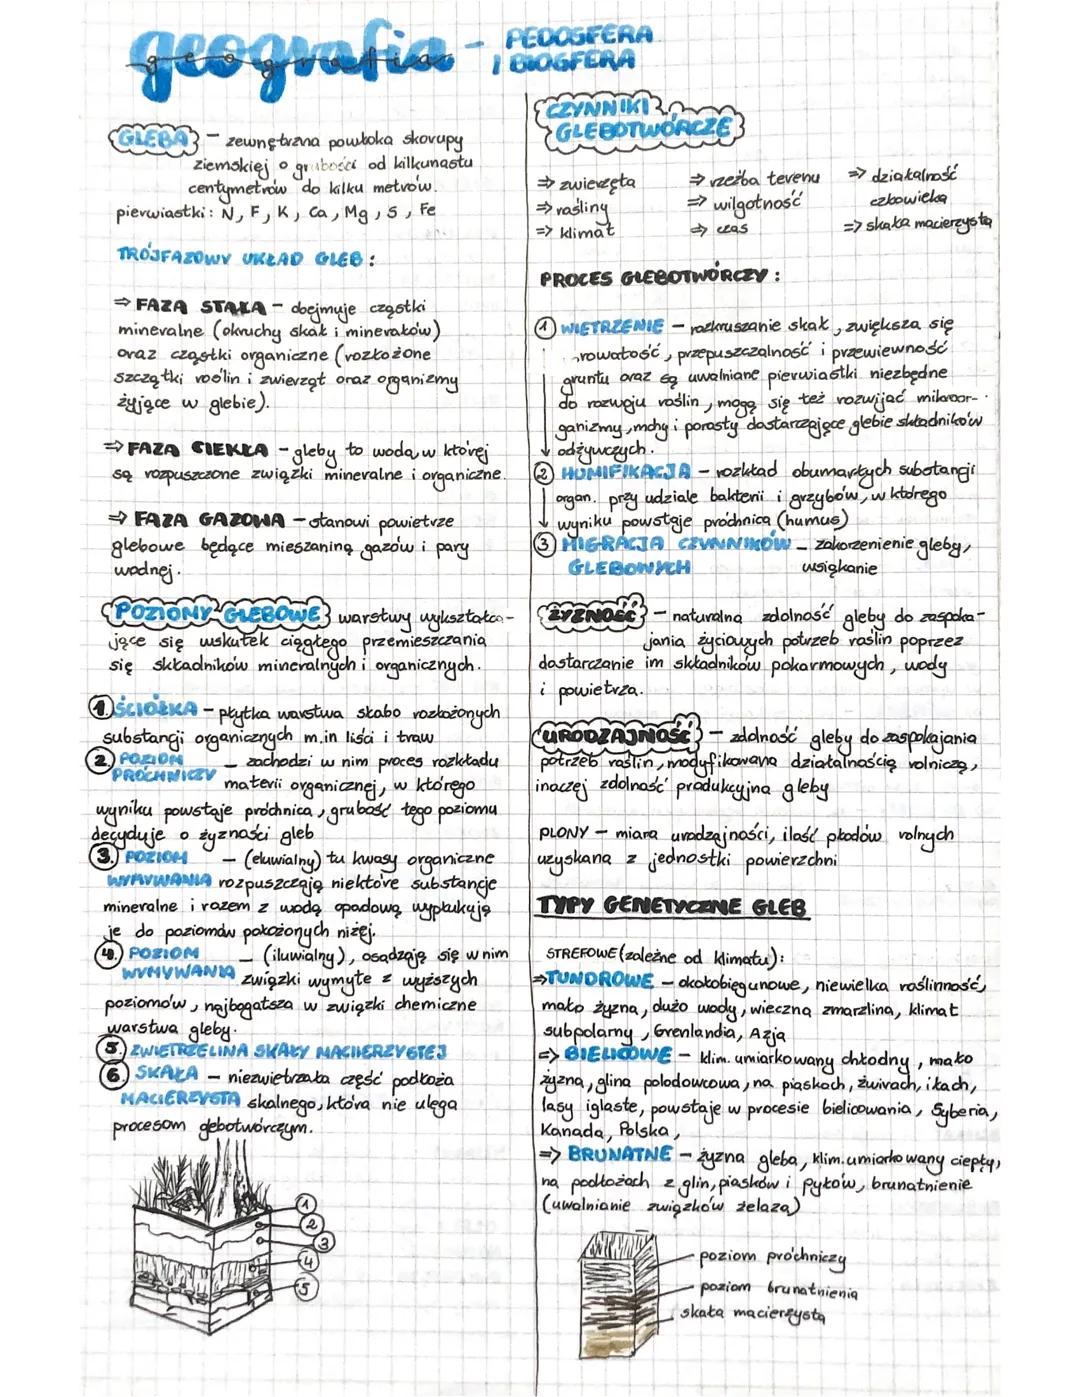 geografia - PEDOSFERA
geografia I BIOSFERA
GLEBA - zewnętrzna powłoka skorupy
ziemskiej o grubości od kilkunastu
centymetrów do kilku metrów.
pierwiastki: N, F, K, Ca, Mg, S, Fe
TRÓJFAZOWY UKŁAD GLEB:
⇒ FAZA STAŁA - obejmuje cząstki
mineralne (okruchy skał i minerałów)
oraz cząstki organiczne (rozłożone
szczątki roślin i zwierząt oraz organizmy
żyjące w glebie).
⇒ FAZA CIEKŁA - gleby to woda, w której
są rozpuszczone związki mineralne i organiczne.
⇒ FAZA GAZOWA - stanowi powietrze
glebowe będące mieszaniną gazów i pary
wodnej.
POZIOMY GLEBOWE warstwy wykształca-
jące się wskutek ciągłego przemieszczania
się składników mineralnych i organicznych.
1. ŚCIÓŁKA - płytka warstwa słabo rozłożonych
substancji organicznych m.in liści i traw
2. POZIOM PRÓCHNICZY - zachodzi w nim proces rozkładu
materii organicznej, w którego
wyniku powstaje próchnica, grubość tego poziomu
decyduje o żyzności gleb
3. POZIOM - (eluwialny) tu kwasy organiczne
WYMYWANIA rozpuszczają niektóre substancje
mineralne i razem z wodą opadową wypłukują
je do poziomów położonych niżej.
4. POZIOM - (iluwialny), osadzają się w nim
WYMYWANIA związki wymyte z wyższych
poziomów, najbogatsza w związki chemiczne
warstwa gleby.
5. ZWIETRZELINA SKAŁY MACIERZYSTEJ
6. SKAŁA - niezwietrzała część podłoża
MACIERZYSTA skalnego, która nie ulega
procesom glebotwórczym.
1
2
3
4
5
CZYNNIKI
GLEBOTWÓRCZE
⇒ zwierzęta ⇒ rzeźba terenu ⇒ działalność
⇒ rośliny ⇒ wilgotność człowieka
⇒ klimat ⇒ czas ⇒ skała macierzysta
PROCES GLEBOTWÓRCZY:
1 WIETRZENIE - rozkruszanie skał, zwiększa się
porowatość, przepuszczalność i przewiewność
gruntu oraz są uwalniane pierwiastki niezbędne
do rozwoju roślin, mogą się też rozwijać mikroor-
ganizmy, mchy i porosty dostarczające glebie składników
odżywczych.
2 HUMIFIKACJA - rozkład obumarłych substancji
organ. przy udziale bakterii i grzybów, w którego
wyniku powstaje próchnica (humus)
3 MIGRACJA CZYNNIKÓW - zakorzenienie gleby,
GLEBOWYCH wsiąkanie
ŻYZNOŚĆ - naturalna zdolność gleby do zaspoka-
jania życiowych potrzeb roślin poprzez
dostarczanie im składników pokarmowych, wody
i powietrza.
URODZAJNOŚĆ - zdolność gleby do zaspokajania
potrzeb roślin, modyfikowana działalnością rolniczą,
inaczej zdolność produkcyjna gleby
PLONY - miara urodzajności, ilość płodów rolnych
uzyskana z jednostki powierzchni
TYPY GENETYCZNE GLEB
STREFOWE (zależne od klimatu):
⇒ TUNDROWE - okołobiegunowe, niewielka roślinność,
mało żyzna, dużo wody, wieczna zmarzlina, klimat
subpolarny, Grenlandia, Azja
⇒ BIELICOWE - klim. umiarkowany chłodny, mało
żyzna, glina polodowcowa, na piaskach, żwirach, iłach,
lasy iglaste, powstaje w procesie bielicowania, Syberia,
Kanada, Polska,
⇒ BRUNATNE - żyzna gleba, klim. umiarkowany ciepły,
na podłożach z glin, piasków i pyłów, brunatnienie
(uwalnianie związków żelaza)
poziom próchniczy
poziom brunatnienia
skała macierzysta